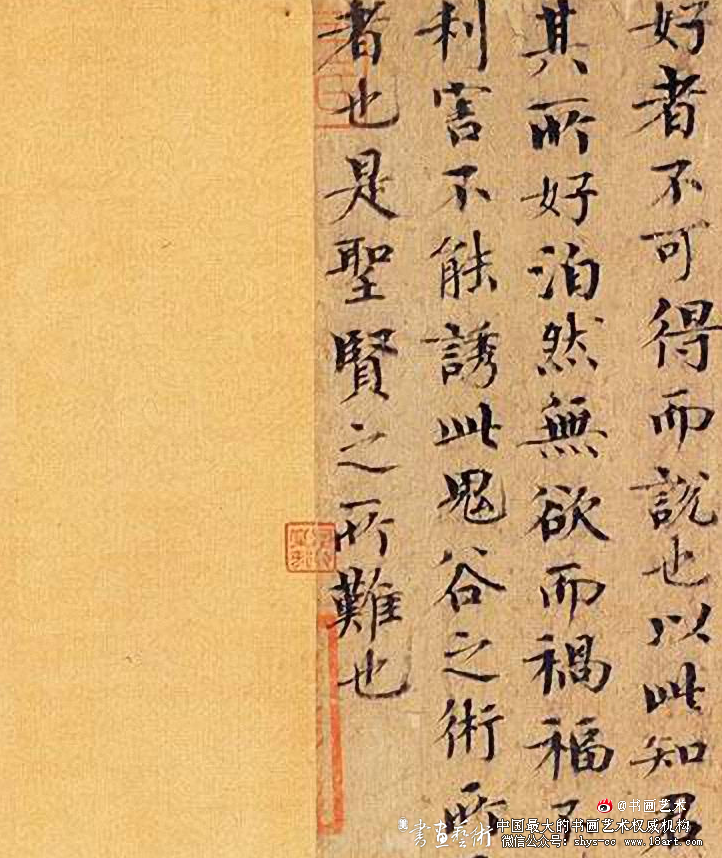 好者不可得而説也以此知
其所好泊然無欲而禍福不
利害不能誘此鬼谷之術所
者也是聖賢之所難也
@书画艺术
書畫藝術
中国最大的书画艺术权威机构
微信公众号: shys-cc